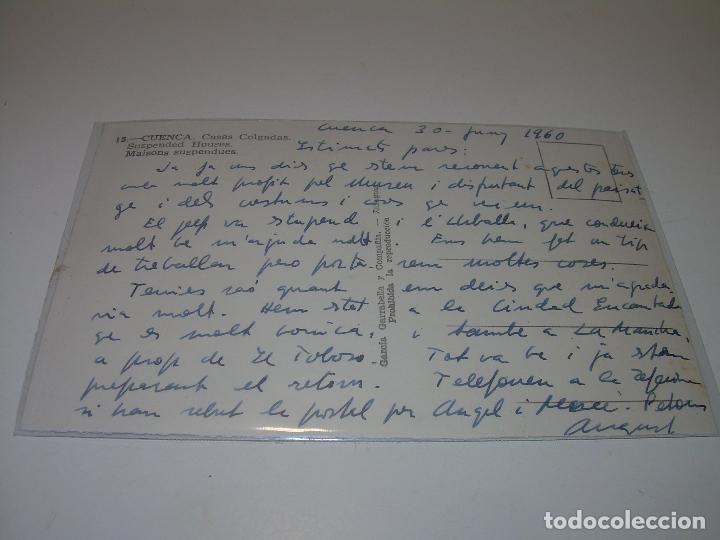 15.—CUENCA. Casas Colgadas.
Suspended Houses.
Maisons suspendues.
García Garrabella y Compañía. — Zaragoza
Prohibida la reproducción
Cuenca 30 - Juny 1960
Estimats pares:
Ja fa uns dies qe stem recorrent aquestes terres
amb molt profit pel Museu i disfrutant del paisat
ge i dels costums i coses qe veiem.
El jeep va stupend i i l'Arballa, que condueix
molt be m'ajuda molt. Ens hem fet un tip
de treballar pero porta- rem moltes coses.
Tenies raó quant em deies que m'agrada
ria molt. Hem stat a la Ciudad Encantada
qe es molt bonica, i tambe a La Mancha,
a prop de El Toboso. Tot va be i ja stem
preparant el retorn. Telefonen a la
si han rebut la postal per Angel i Mercè. Petons
August
todocoleccion